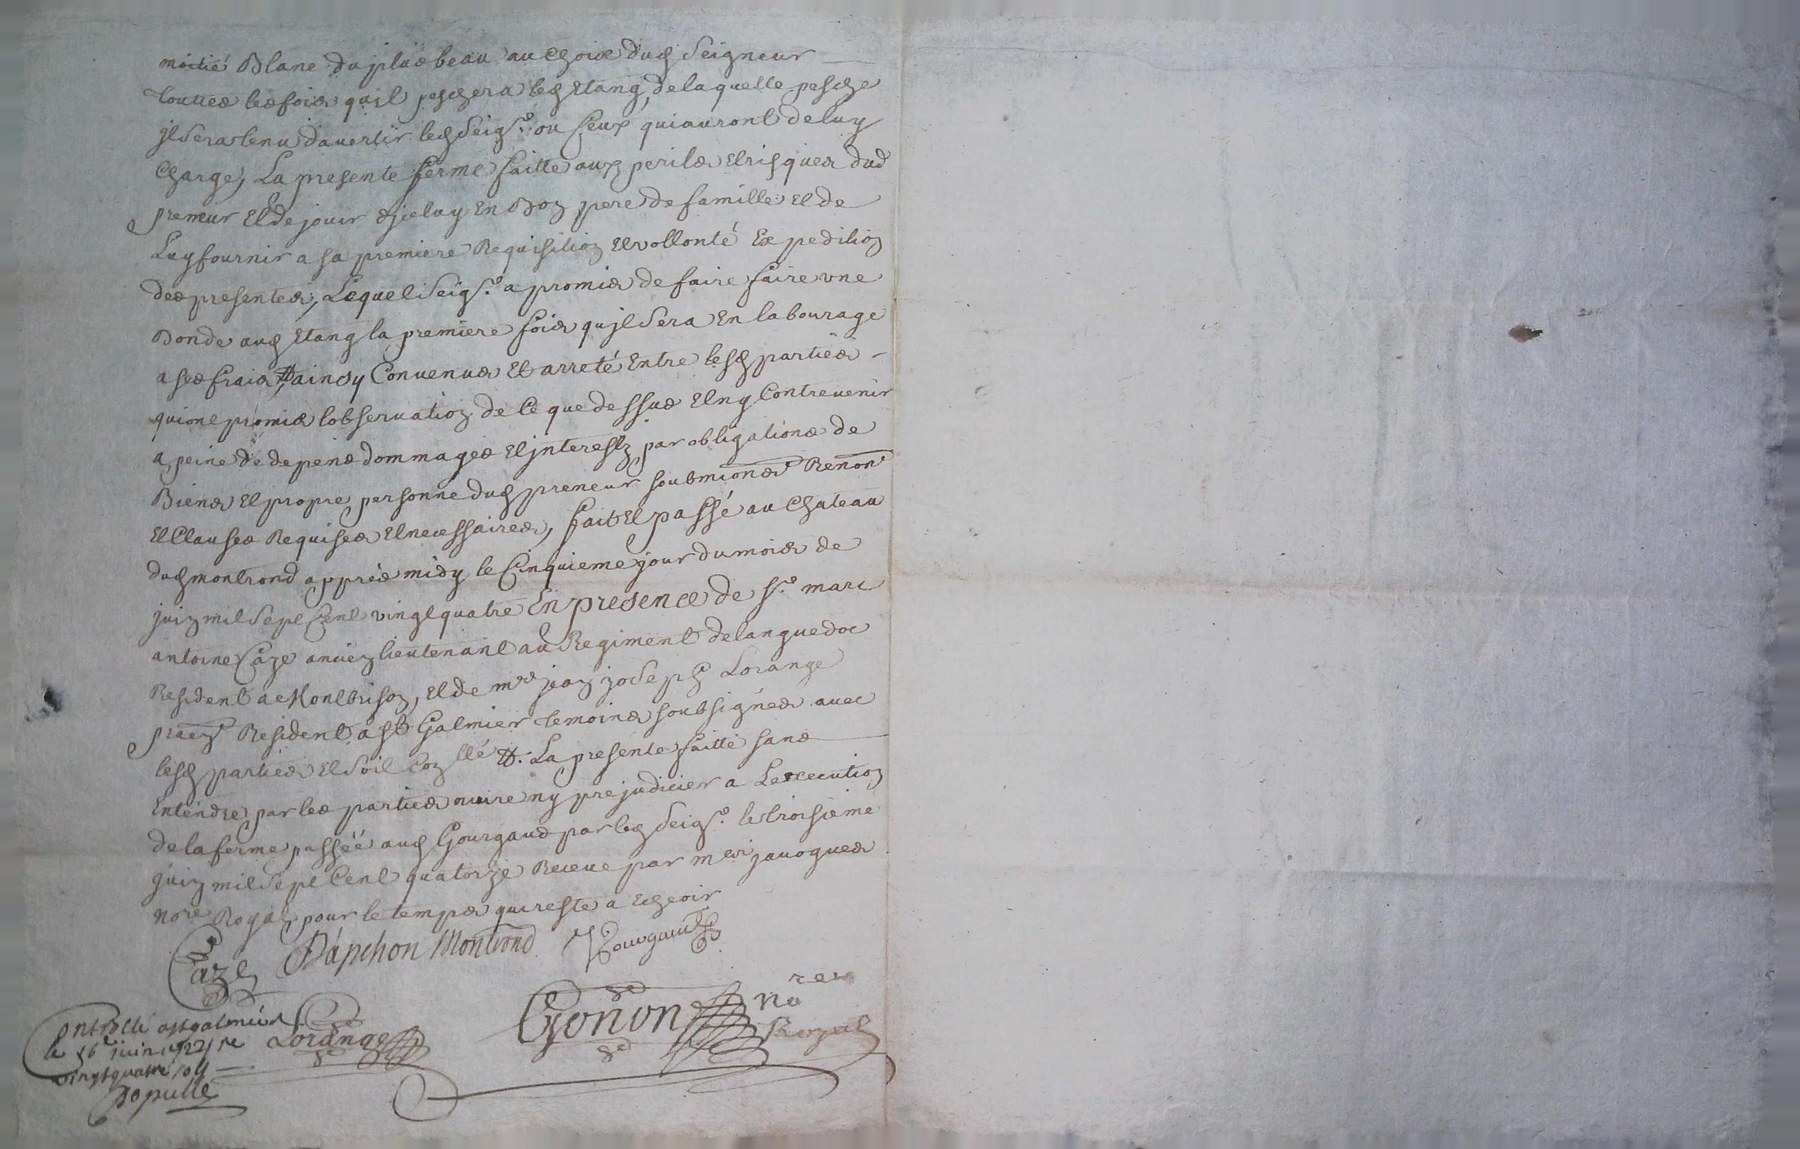 moitié Blanc du plus beau au choix dud Seigneur
touttes les fois quil peschera led Etang, de laquelle pesche
jl sera tenu davertir led Seigr. ou ceux qui auront de luy
charge, La presente ferme faitte aux perils et risques dud
preneur Et de jouir djceluy En Bon pere de famille et de
Luy fournir a sa premiere Requisition et vollonté Expedition
des presentes, Lequel Seigr. a promis de faire faire une
Bonde aud Etang la premiere fois qujl sera En labourage
a ses frais, ainsy Convenus Et arreté Entre lesd parties
qui ont promis lobservation de Ce que dessus Et ny Contrevenir
a peine de depens dommages Et jnterestz par obligations de
Biens Et propre personne dud preneur soubmions Renons
Et Clauses Requises Et necessaires, fait Et passé au Chateau
dud montrond appres midy le Cinquieme jour du mois de
juin mil Sept Cent vingt quatre En presence de sr. marc
antoine Caze ancien lieutenant au Regiment de languedoc
Resident a Montbrison, Et de mre jean joseph Lorange
praen Resident a st Galmier temoins soubsignés avec
lesd parties Et soit Conllé. La presente faitte sans
Entendre par les parties nuire ny prejudicier a Lexecution
de la ferme passéé aud Gourgaud par led Seigr. le troisieme
juin mil Sept Cent quatorze Receue par me javogues
nore Royal pour le temps qui reste a Echeoir
Caze Dapchon Montrond Gourgaud
Lorange Gonon nore Royal
Controllé a st galmier
le 16e juin 1724 Re
vingt quatre sols
Populle